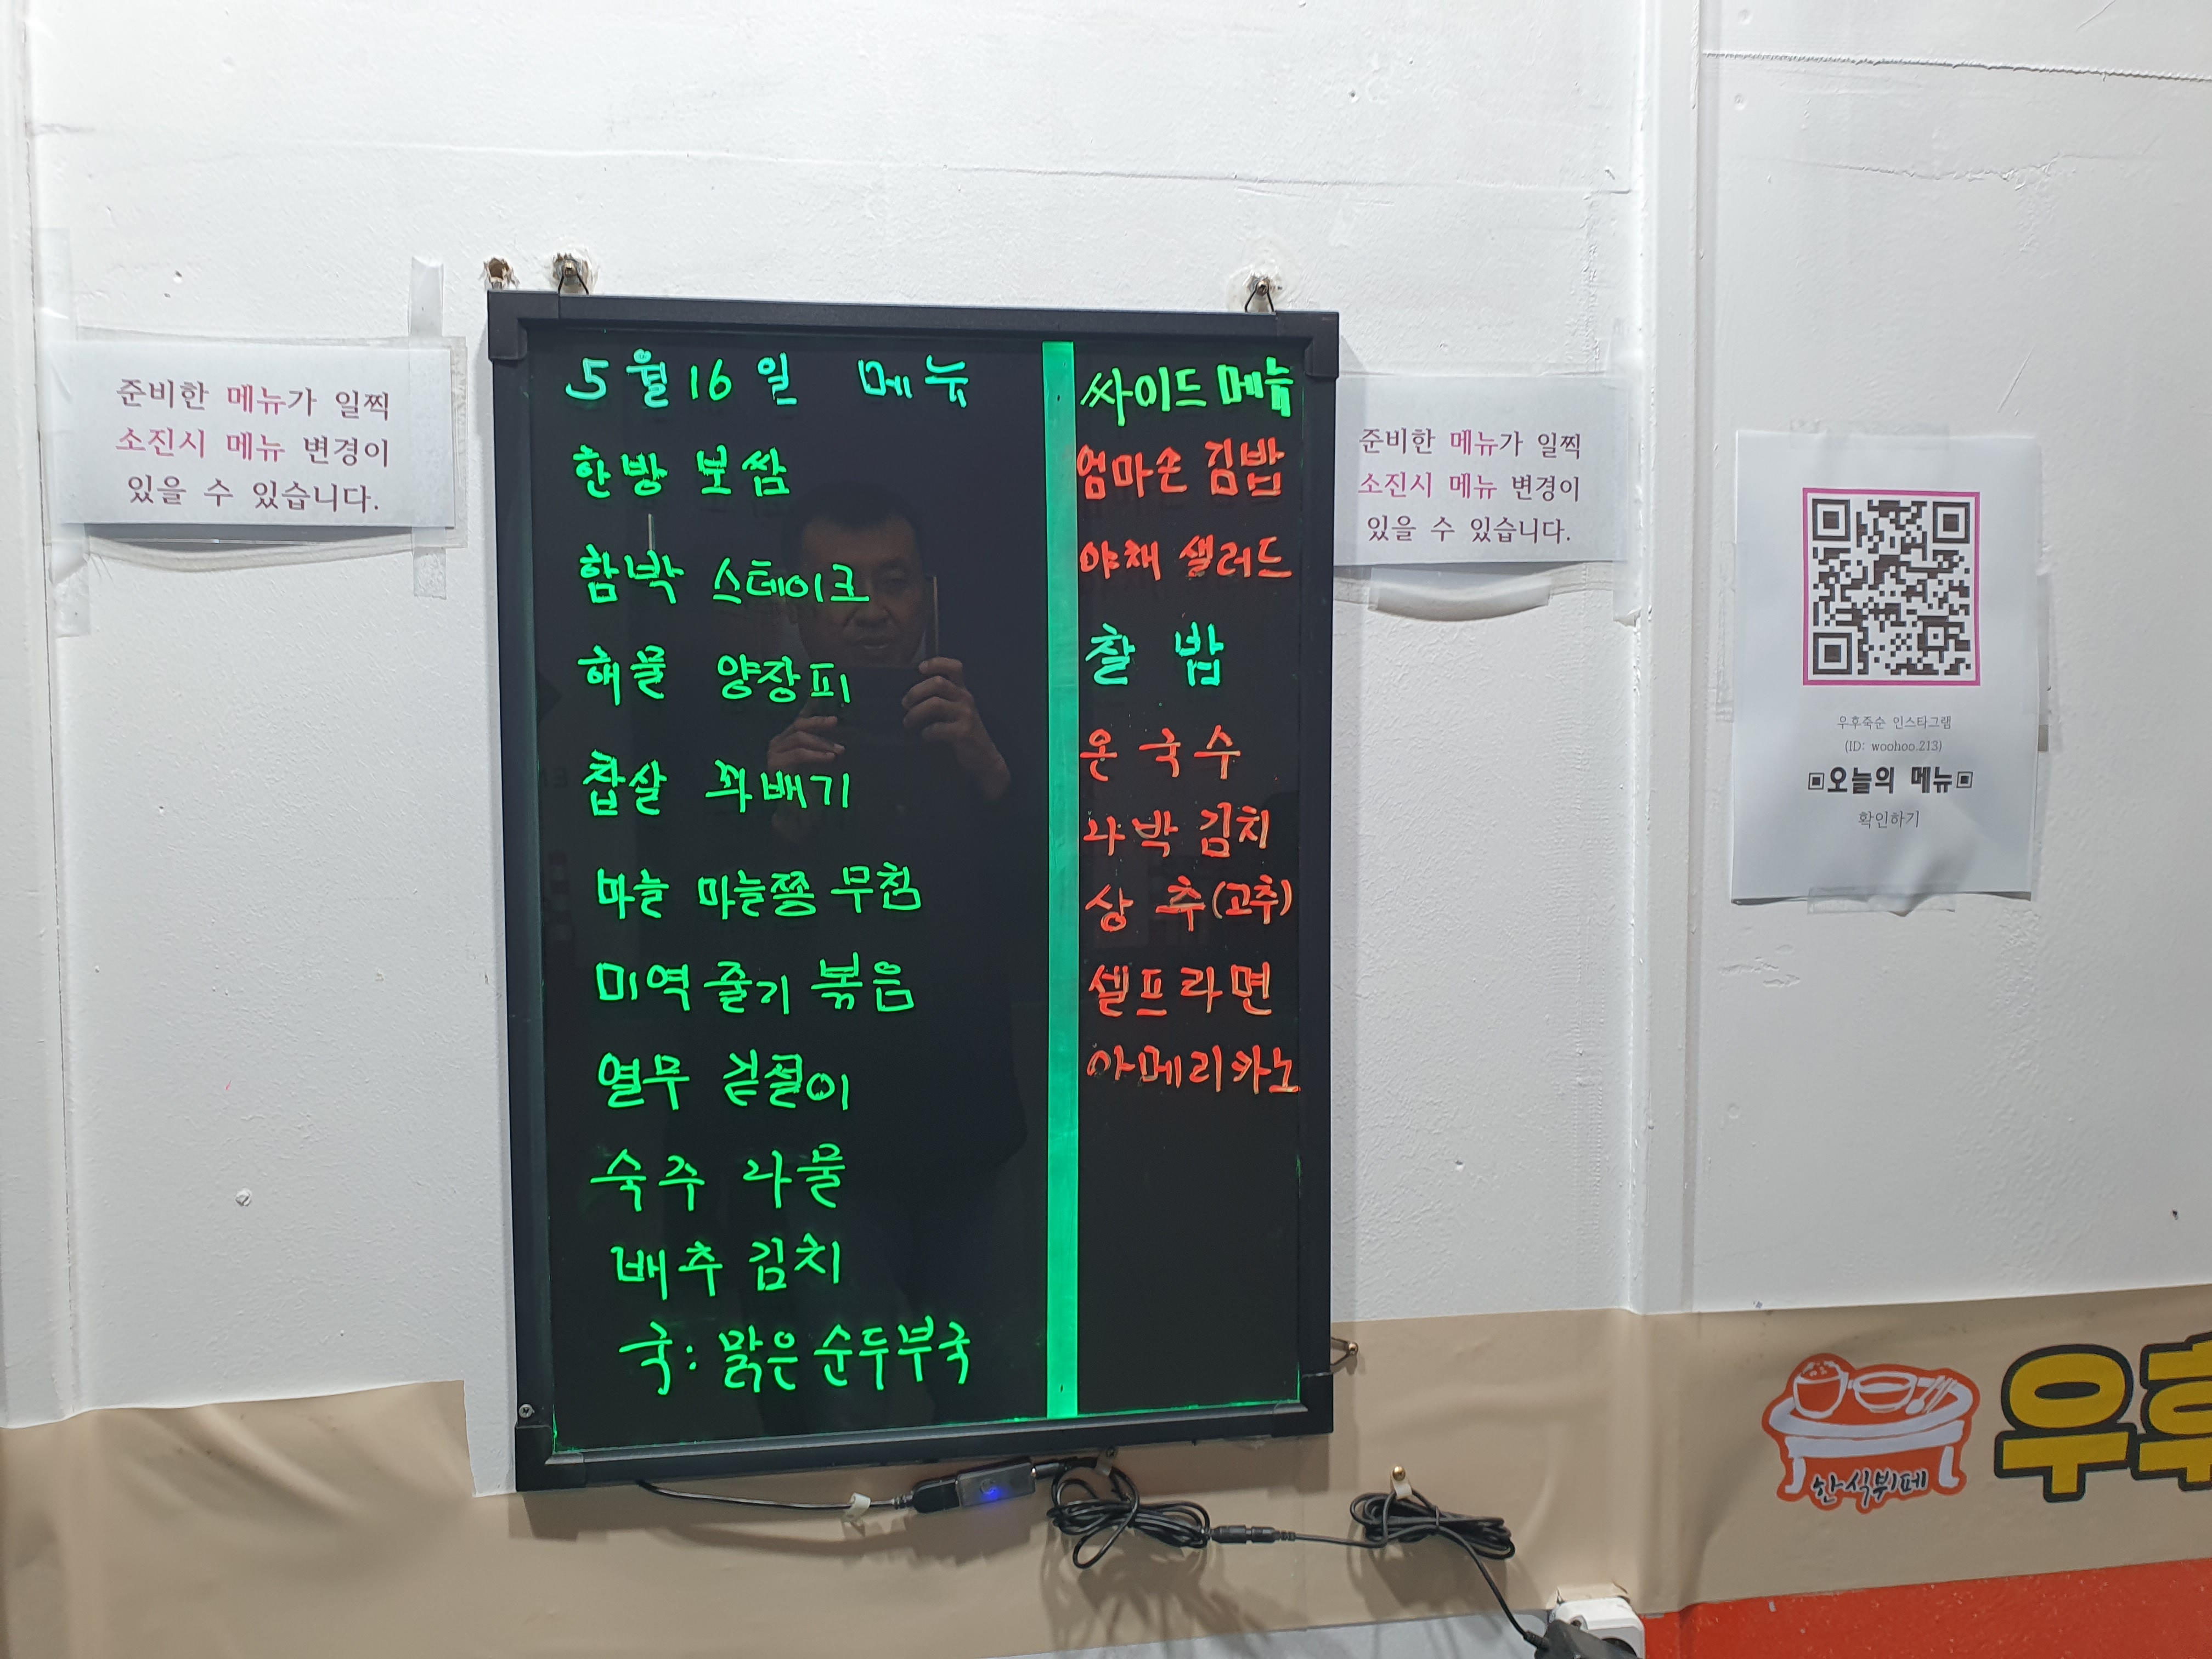 준비한 메뉴가 일찍
소진시 메뉴 변경이
있을 수 있습니다.
5월 16일 메뉴
한방 보쌈
함박 스테이크
해물 양장피
찹쌀 꽈배기
마늘 마늘쫑 무침
미역줄기 볶음
열무 겉절이
숙주 나물
배추 김치
국: 맑은 순두부국
싸이드 메뉴
엄마손 김밥
야채 샐러드
찰 밥
온 국수
나박 김치
상 추(고추)
셀프라면
아메리카노
준비한 메뉴가 일찍
소진시 메뉴 변경이
있을 수 있습니다.
우후죽순 인스타그램
(ID: woohoo.213)
▣오늘의 메뉴▣
확인하기
한식뷔페
우후